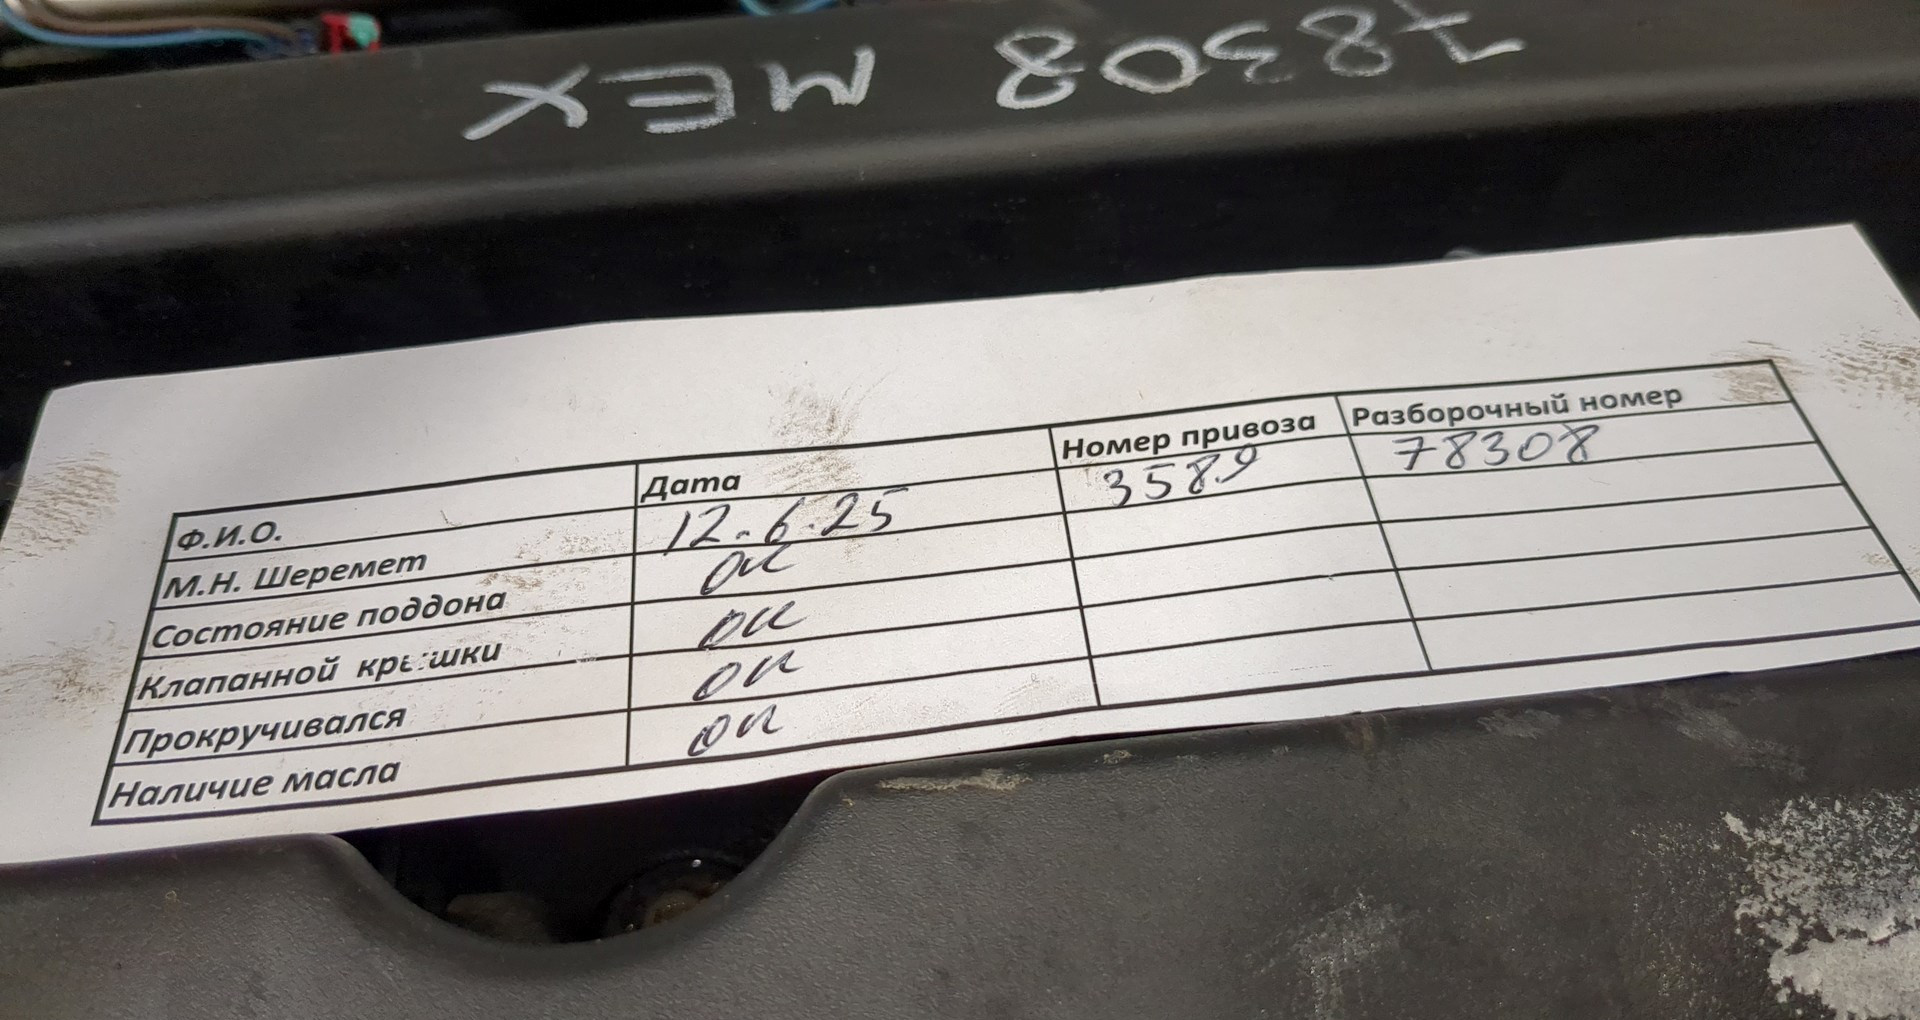 78308 MEX
Ф.И.О. Дата Номер привоза Разборочный номер
М.Н. Шеремет 12.6.25 3589 78308
Состояние поддона ок
Клапанной крышки ок
Прокручивался ок
Наличие масла ок